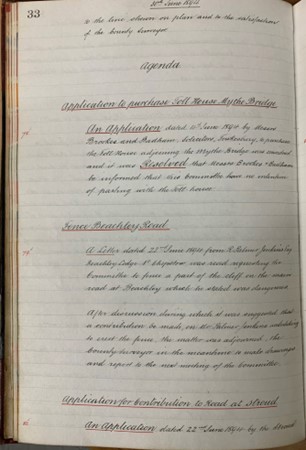 33
30th June 1894
to the line shown on plan and to the satisfaction
of the County Surveyor
Agenda
Application to purchase Toll House Mythe Bridge
An Application dated 11th June 1894 by Messrs
Brookes and Badham, Solicitors, Tewkesbury, to purchase
the Toll House adjoining the Mythe Bridge was
and it was Resolved that Messrs Brookes & Badham
be informed that this Committee have no intention
of parting with the Toll house
Fence Beachley Road
A Letter dated 22nd June 1894 from R. Palmer Jenkins Esq
Beachley Lodge Nr Chepstow was read requesting the
Committee to fence a part of the cliff on the main
road at Beachley which he stated was dangerous
After discussion during which it was suggested that
a contribution be made, on Mr Palmer Jenkins undertaking
to erect the fence, the matter was adjourned the
County Surveyor in the meantime to make
and report to the next meeting of the Committee
Application for Contribution to Road at Stroud
An Application dated 22nd June 1894 by the Stroud